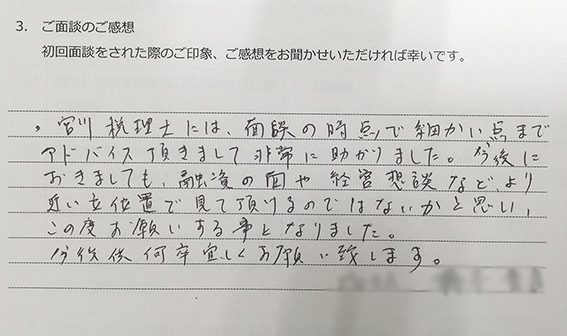 3. ご面談のご感想
初回面談をされた際のご印象、ご感想をお聞かせいただければ幸いです。
、宮川税理士には、面談の時点で細かい点まで
アドバイス頂きまして非常に助かりました。今後に
おきましても、融資の面や経営想談など、より
近い立位置で見て頂けるのではないかと思い、
この度お願いする事となりました。
今後供何卒宜しくお願い致します。